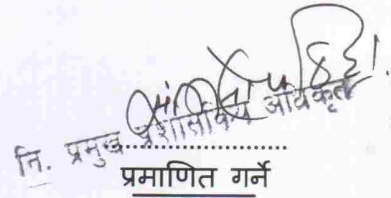 नि. प्रमुख प्रशासकीय अधिकृत
....................
प्रमाणित गर्ने